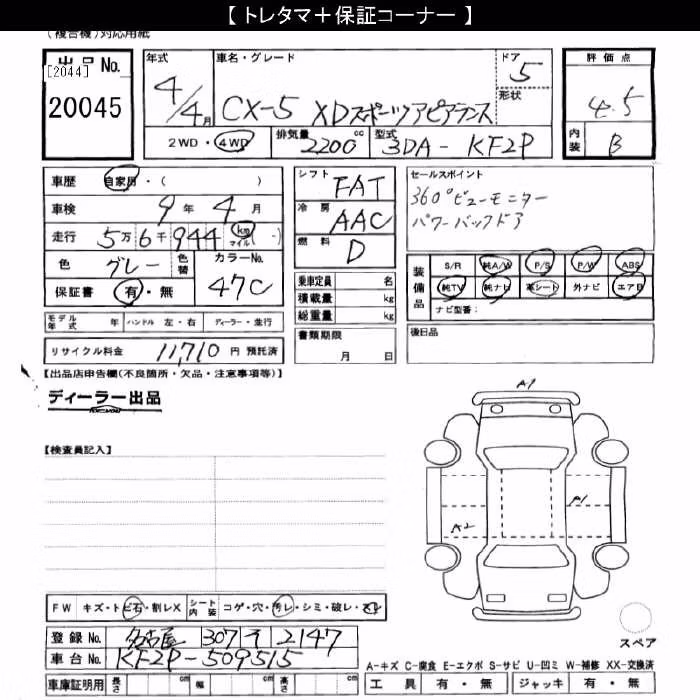 【 トレタマ＋保証コーナー 】
(複合機)対応用紙
出品No.
[2044]
20045
年式
4/4月
車名・グレード
CX-5 XDスポーツアピアランス
ドア
5
形状
2WD・4WD
排気量
2200cc
型式
3DA-KF2P
評価点
4.5
内装
B
車歴 自家用・( )
車検 9年 4月
走行 5万6千944 km マイル (-)
色 グレー 色替
カラーNo. 47C
保証書 有・無
モデル年式 年 ハンドル 左・右 ディーラー・並行
リサイクル料金 11,710 円 預託済
シフト FAT
冷房 AAC
燃料 D
乗車定員 名
積載量 kg
総重量 kg
書類期限
月 日
セールスポイント
360°ビューモニター
パワーバックドア
装備品
S/R 純A/W P/S P/W ABS
純TV 純ナビ 革シート 外ナビ エアB
ナビ型番:
後日品
【出品店申告欄(不良箇所・欠品・注意事項等)】
ディーラー出品
【検査員記入】
A1
A1
A2
FW キズ・トビ石・割レX シート内装 コゲ・穴・汚レ・シミ・破レ・スレ
登録No. 名古屋 307 テ 2147
車台No. KF2P-509515
車庫証明用 長さ cm 幅 cm 高さ cm
スペア
A-キズ C-腐食 E-エクボ S-サビ U-凹ミ W-補修 XX-交換済
工具 有・無 ジャッキ 有・無